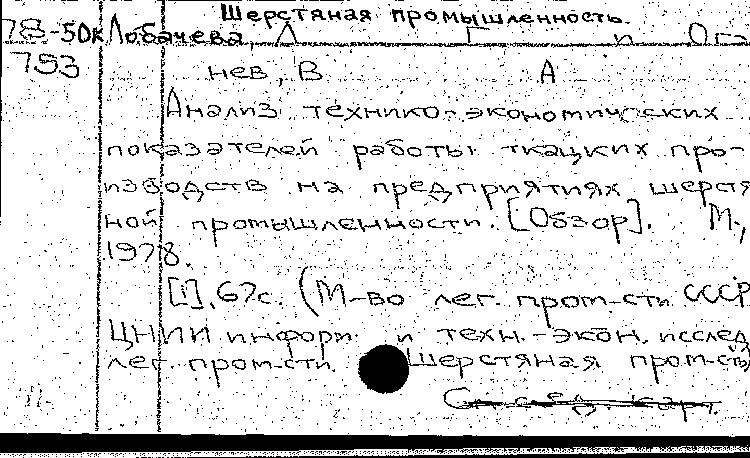 Шерстяная промышленность.
78-50к Лобачева, Л Г и Ога
793 нев, В А
Анализ технико-экономических
показателей работы ткацких про-
изводств на предприятиях шерстя
ной промышленности. [Обзор]. М.,
1978.
[1], 67с. (М-во лег. пром-сти СССР
ЦНИИ информ. и техн.-экон. исслед
лег. пром-сти. Шерстяная пром-сть)
См. след. карт.